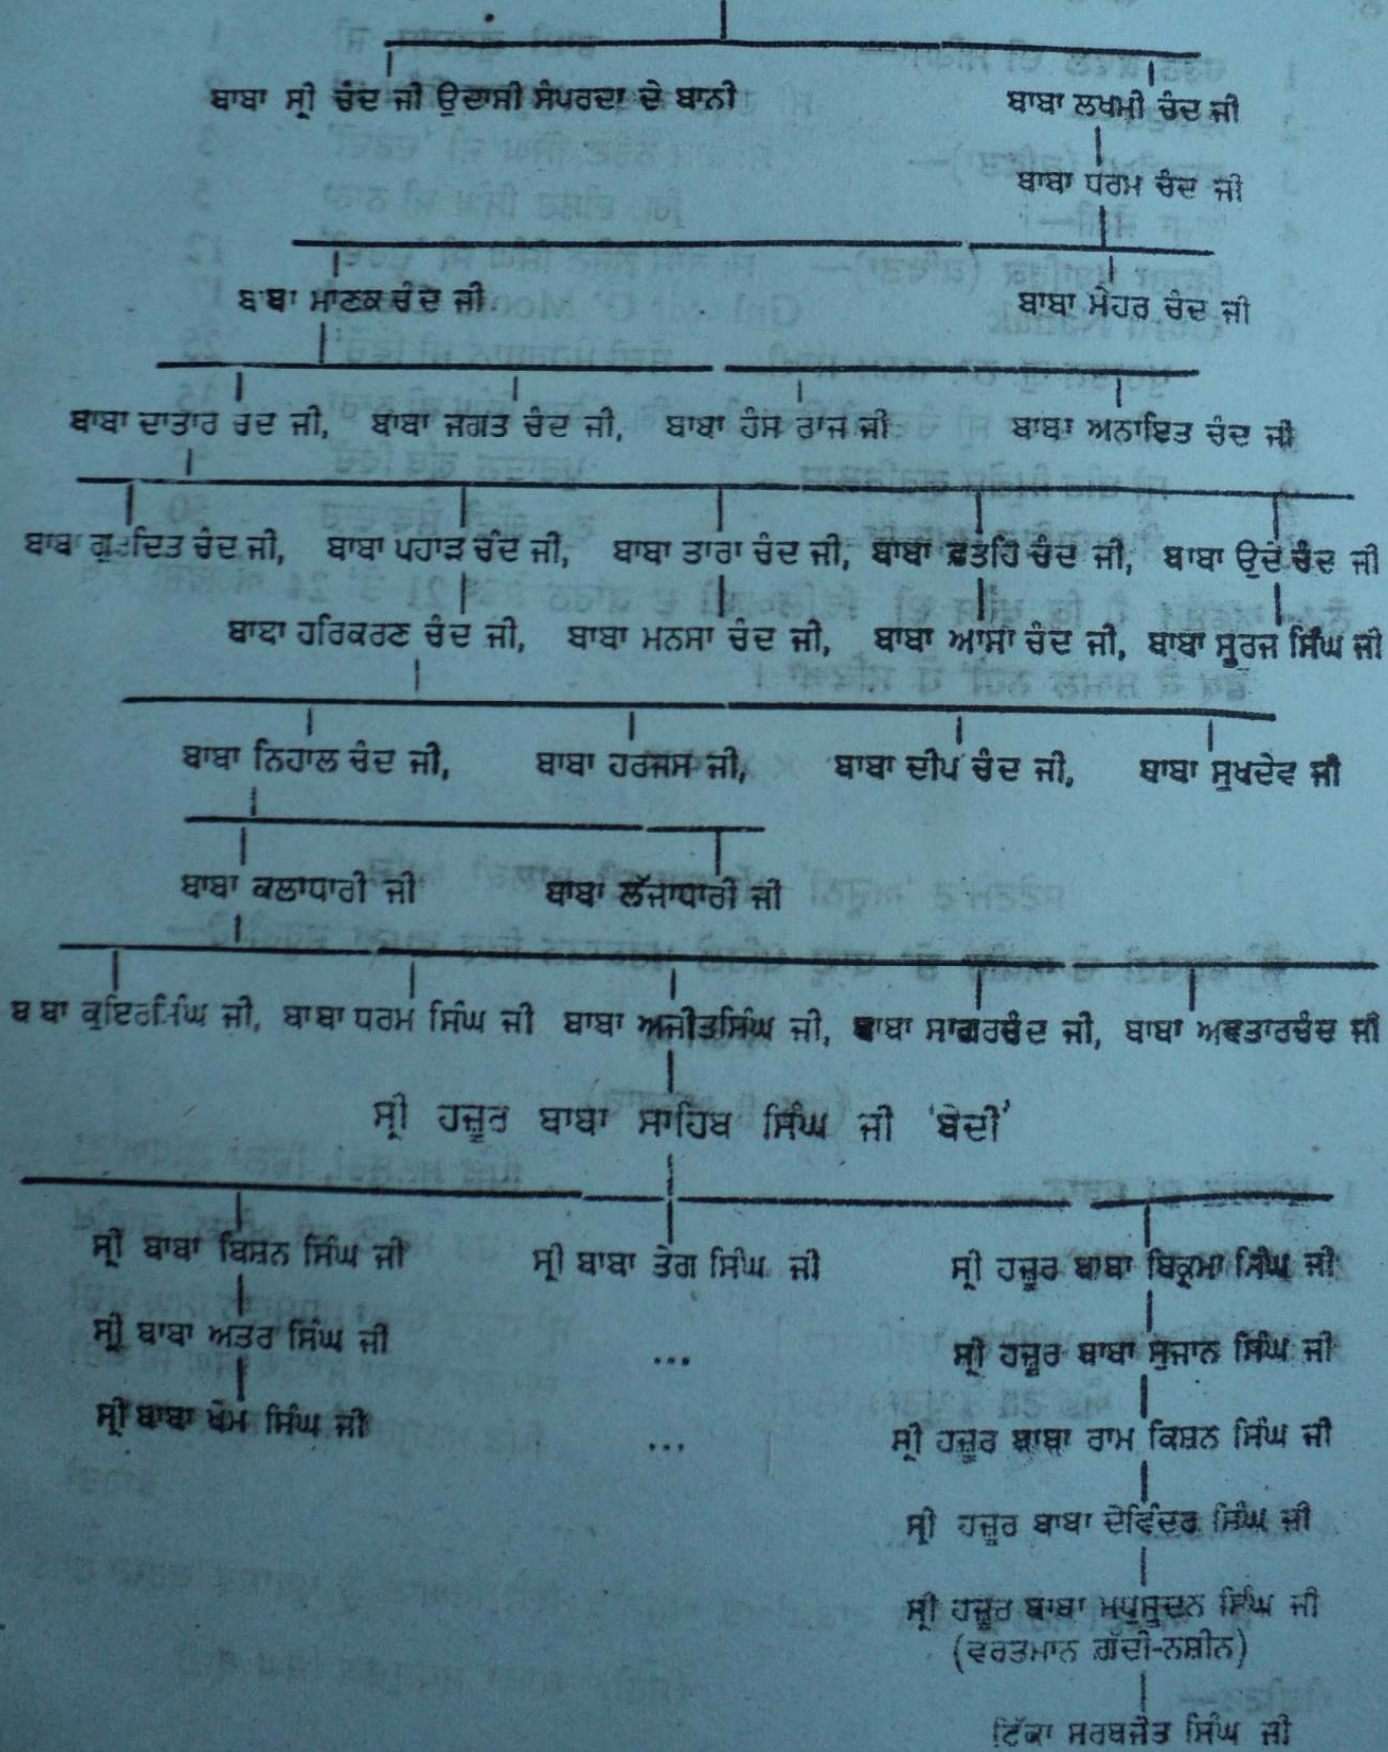 ਬਾਬਾ ਸ੍ਰੀ ਚੰਦ ਜੀ ਉਦਾਸੀ ਸੰਪਰਦਾ ਦੇ ਬਾਨੀ ਬਾਬਾ ਲਖਮੀ ਚੰਦ ਜੀ
ਬਾਬਾ ਧਰਮ ਚੰਦ ਜੀ
ਬਾਬਾ ਮਾਣਕ ਚੰਦ ਜੀ ਬਾਬਾ ਮੇਹਰ ਚੰਦ ਜੀ
ਬਾਬਾ ਦਾਤਾਰ ਚੰਦ ਜੀ, ਬਾਬਾ ਜਗਤ ਚੰਦ ਜੀ, ਬਾਬਾ ਹੰਸ ਰਾਜ ਜੀ ਬਾਬਾ ਅਨਾਇਤ ਚੰਦ ਜੀ
ਬਾਬਾ ਗੁਰਦਿਤ ਚੰਦ ਜੀ, ਬਾਬਾ ਪਹਾੜ ਚੰਦ ਜੀ, ਬਾਬਾ ਤਾਰਾ ਚੰਦ ਜੀ, ਬਾਬਾ ਫ਼ਤਹਿ ਚੰਦ ਜੀ, ਬਾਬਾ ਉਦੇ ਚੰਦ ਜੀ
ਬਾਬਾ ਹਰਿਕਰਣ ਚੰਦ ਜੀ, ਬਾਬਾ ਮਨਸਾ ਚੰਦ ਜੀ, ਬਾਬਾ ਆਸਾ ਚੰਦ ਜੀ, ਬਾਬਾ ਸੂਰਜ ਸਿੰਘ ਜੀ
ਬਾਬਾ ਨਿਹਾਲ ਚੰਦ ਜੀ, ਬਾਬਾ ਹਰਜਸ ਜੀ, ਬਾਬਾ ਦੀਪ ਚੰਦ ਜੀ, ਬਾਬਾ ਸੁਖਦੇਵ ਜੀ
ਬਾਬਾ ਕਲਾਧਾਰੀ ਜੀ ਬਾਬਾ ਲੱਜਾਧਾਰੀ ਜੀ
ਬਾਬਾ ਕੁਇਰਸਿੰਘ ਜੀ, ਬਾਬਾ ਧਰਮ ਸਿੰਘ ਜੀ ਬਾਬਾ ਅਜੀਤਸਿੰਘ ਜੀ, ਬਾਬਾ ਸਾਗਰਚੰਦ ਜੀ, ਬਾਬਾ ਅਵਤਾਰਚੰਦ ਜੀ
ਸ੍ਰੀ ਹਜ਼ੂਰ ਬਾਬਾ ਸਾਹਿਬ ਸਿੰਘ ਜੀ 'ਬੇਦੀ'
ਸ੍ਰੀ ਬਾਬਾ ਬਿਸ਼ਨ ਸਿੰਘ ਜੀ ਸ੍ਰੀ ਬਾਬਾ ਤੇਗ ਸਿੰਘ ਜੀ ਸ੍ਰੀ ਹਜ਼ੂਰ ਬਾਬਾ ਬਿਕ੍ਰਮਾ ਸਿੰਘ ਜੀ
ਸ੍ਰੀ ਬਾਬਾ ਅਤਰ ਸਿੰਘ ਜੀ ... ਸ੍ਰੀ ਹਜ਼ੂਰ ਬਾਬਾ ਸੁਜਾਨ ਸਿੰਘ ਜੀ
ਸ੍ਰੀ ਬਾਬਾ ਖੇਮ ਸਿੰਘ ਜੀ ... ਸ੍ਰੀ ਹਜ਼ੂਰ ਬਾਬਾ ਰਾਮ ਕਿਸ਼ਨ ਸਿੰਘ ਜੀ
ਸ੍ਰੀ ਹਜ਼ੂਰ ਬਾਬਾ ਦੇਵਿੰਦਰ ਸਿੰਘ ਜੀ
ਸ੍ਰੀ ਹਜ਼ੂਰ ਬਾਬਾ ਮਧੁਸੂਦਨ ਸਿੰਘ ਜੀ
(ਵਰਤਮਾਨ ਗੱਦੀ-ਨਸ਼ੀਨ)
ਟਿੱਕਾ ਸਰਬਜੋਤ ਸਿੰਘ ਜੀ